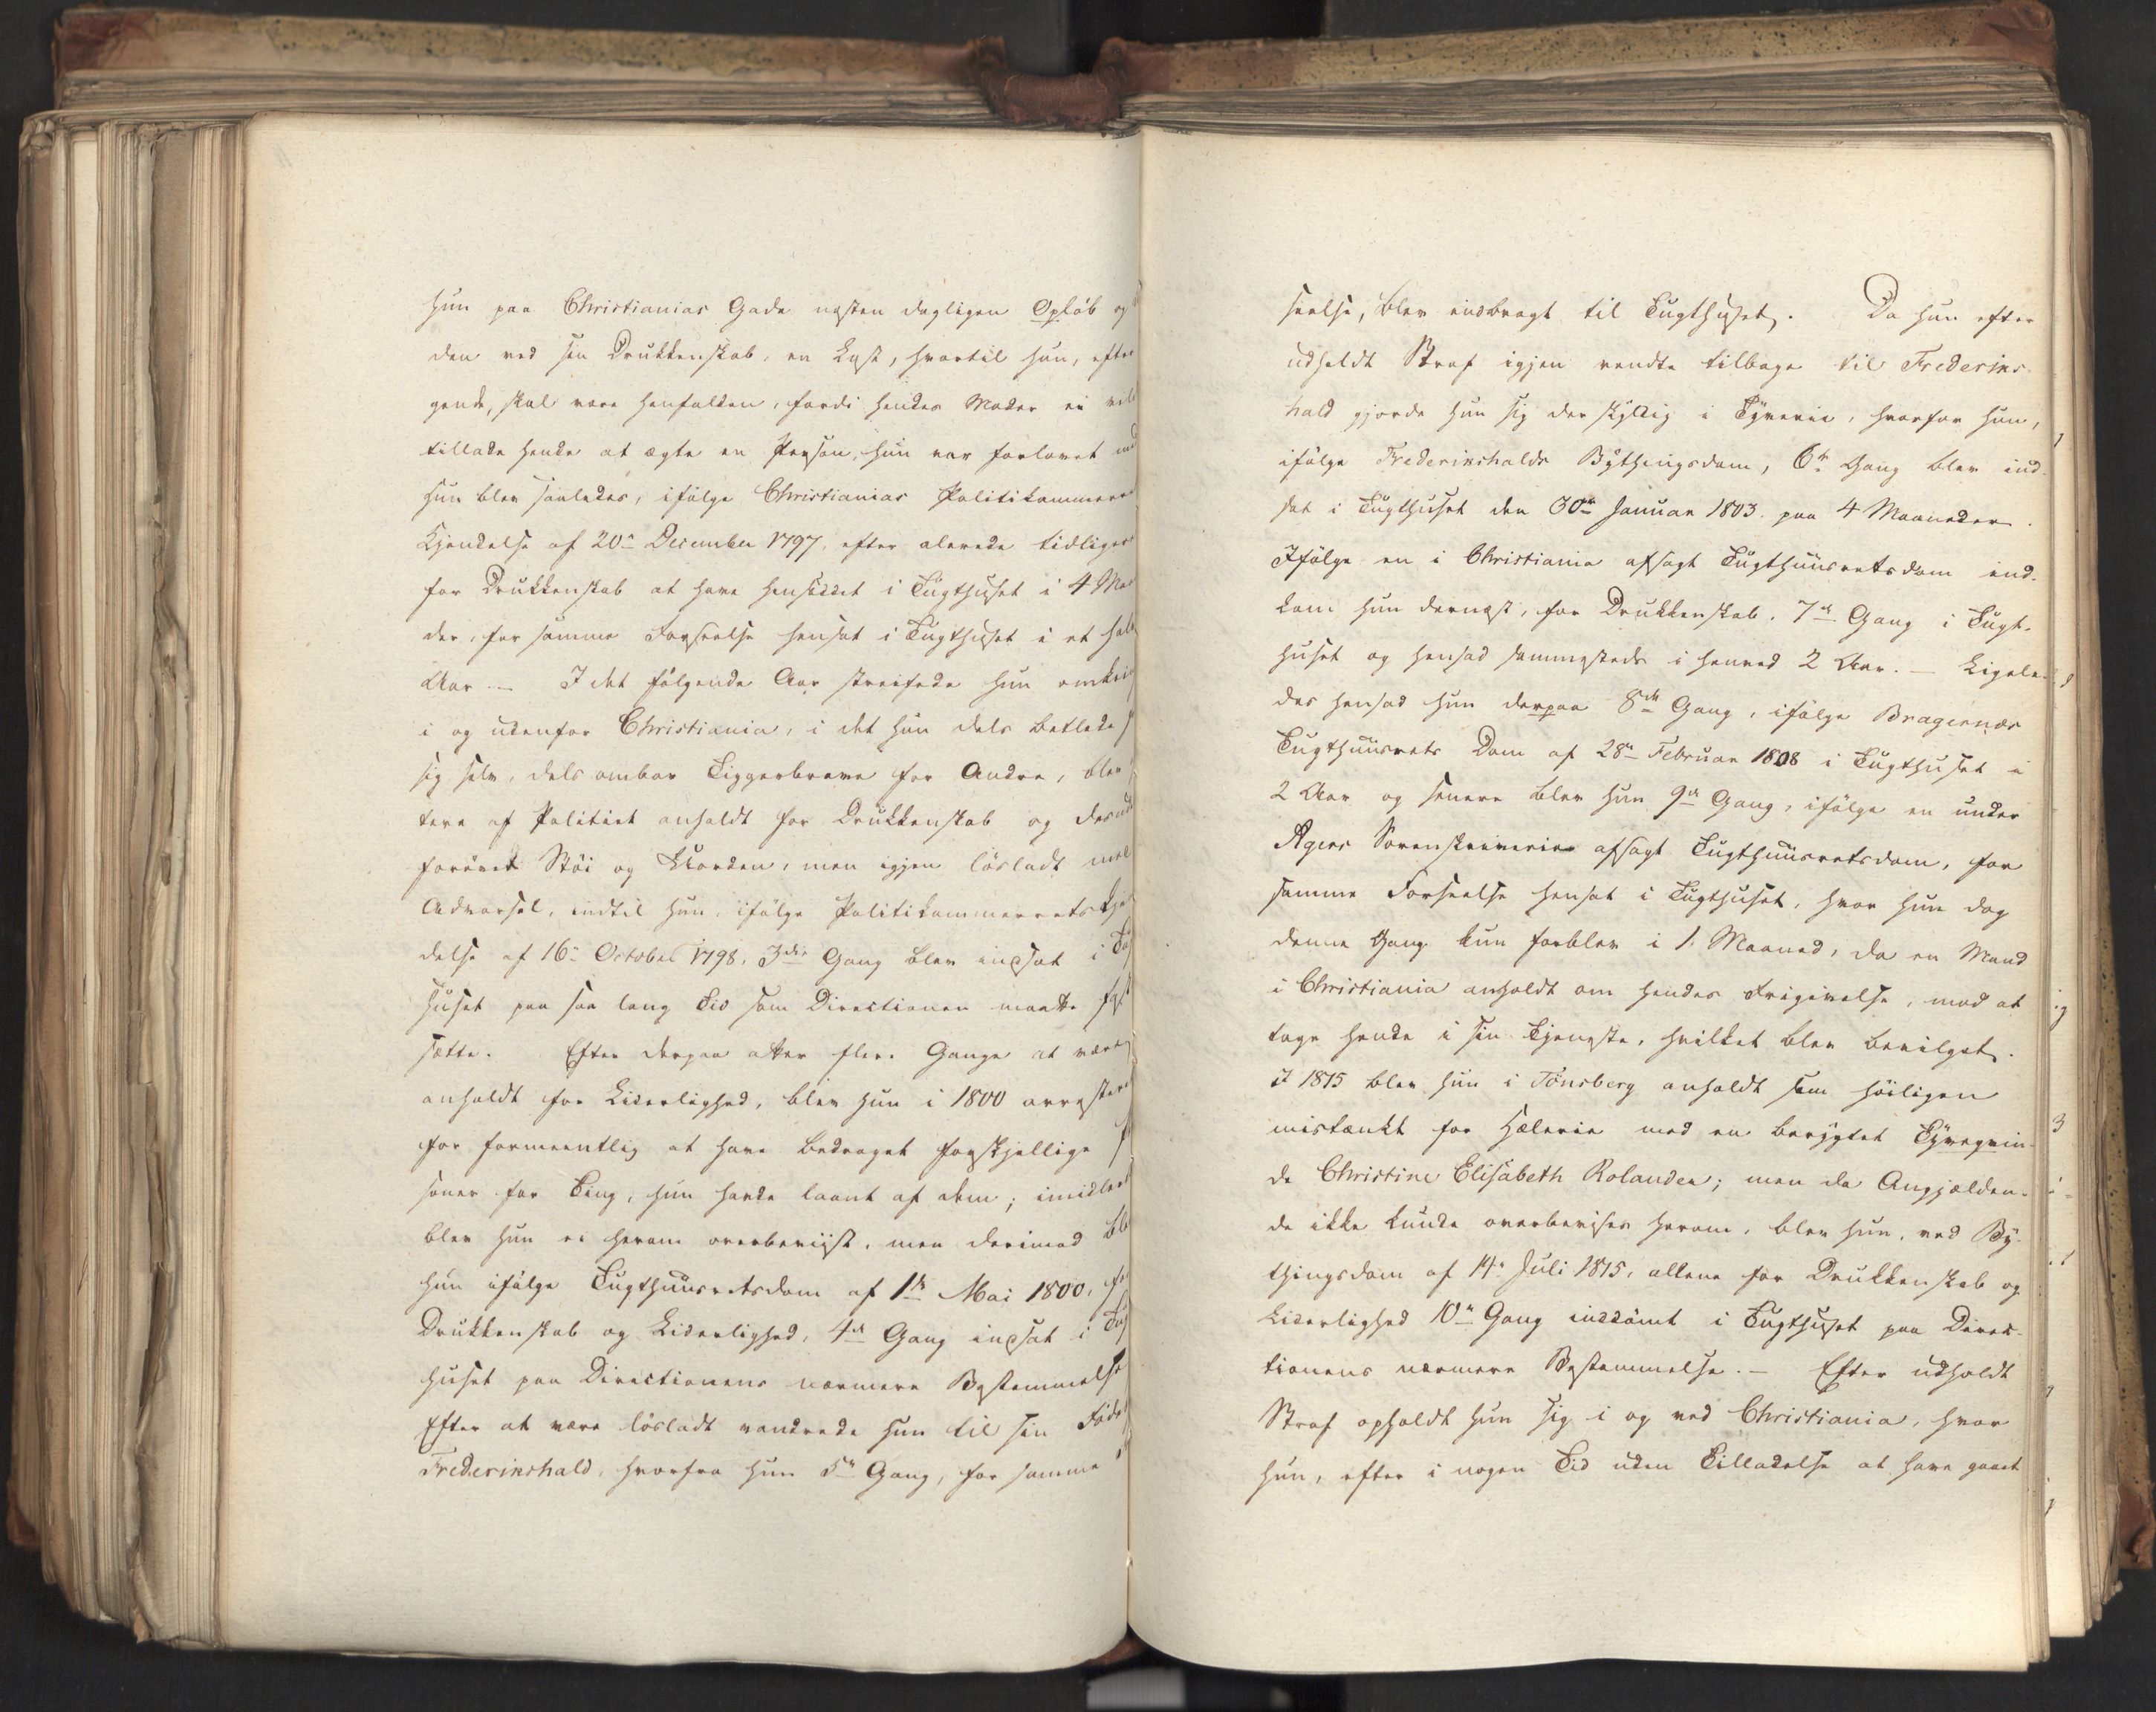 hun paa Christianias Gade næsten dagligen Opløb og
den ved sin Drukkenskab, en Last, hvortil hun, efter
gende, skal være henfalden, fordi hendes Moder ei vild
tillade hende at ægte en Person, hun var forlovet med
Hun blev saaledes, ifølge Christianias Politikammers
Kjendelse af 20de December 1797, efter alerede tidligere
for Drukkenskab at have hensiddet i Tugthuset i 4 Maa
der, for samme Forseelse hensat i Tugthuset i et halv
Aar. – I det følgende Aar streifede hun omkring
i og udenfor Christiania, i det hun dels betlede
sig selv, dels ombar Tiggerbreve for Andre, blev
tere af Politiet anholdt for Drukkenskab og derved
forøvet Støi og Uorden, men igjen løsladt med
Advarsel, indtil hun, ifølge Politikammerrets Kjen
delse af 16de October 1798, 3die Gang blev indsat i Tug
huset paa saa lang Tid som Directionen maatte fast
sætte. Efter derpaa atter flere Gange at være
anholdt for Liderlighed, blev hun i 1800 arresteret
for formeentlig at have bedraget forskjellige
soner for Ting, hun havde laant af dem; imidlertid
blev hun ei herom overbeviist, men derimod blev
hun ifølge Tugthuusretsdom af 1ste Mai 1800, for
Drukkenskab og Liderlighed, 4de Gang indsat i Tug
huset paa Directionens nærmere Bestemmelse
Efter at være løsladt vandrede hun til sin Føde
Frederikshald, hvorfra hun 5te Gang, for samme
seelse, blev indbragt til Tugthuset. Da hun efter
udholdt Straf igjen vendte tilbage til Frederiks-
hald gjorde hun sig der skyldig i Tyverie, hvorfor hun,
ifølge Frederikshalds Bythingsdom, 6te Gang blev ind-
sat i Tugthuset den 30te Januar 1803 paa 4 Maaneder.
Ifølge en i Christiania afsagt Tugthuusretsdom ind-
kom hun dernæst, for Drukkenskab, 7de Gang i Tugt-
huset og hensad sammesteds i henved 2 Aar. – Ligele-
des hensad hun derpaa 8de Gang, ifølge Bragernæs
Tugthuusrets Dom af 28de Februar 1808 i Tugthuset i
2 Aar og senere blev hun 9de Gang, ifølge en under
Agers Sorenskriverie afsagt Tugthuusretsdom, for
samme Forseelse hensat i Tugthuset, hvor hun dog
denne Gang kun forblev i 1 Maaned, da en Mand
i Christiania anholdt om hendes Frigivelse, mod at
tage hende i sin Tjeneste, hvilket blev bevilget.
I 1815 blev hun i Tønsberg anholdt som høiligen
mistænkt for Hælerie med en berygtet Tyveqvin-
de Christine Elisabeth Rolandsen; men da Angjælden-
de ikke kunde overbevises herom, blev hun, ved By-
thingsdom af 14de Juli 1815, allene for Drukkenskab og
Liderlighed 10de Gang inddømt i Tugthuset paa Direc-
tionens nærmere Bestemmelse. – Efter udholdt
Straf opholdt hun sig i og ved Christiania, hvor
hun, efter i nogen Tid uden Tilladelse at have gaaet